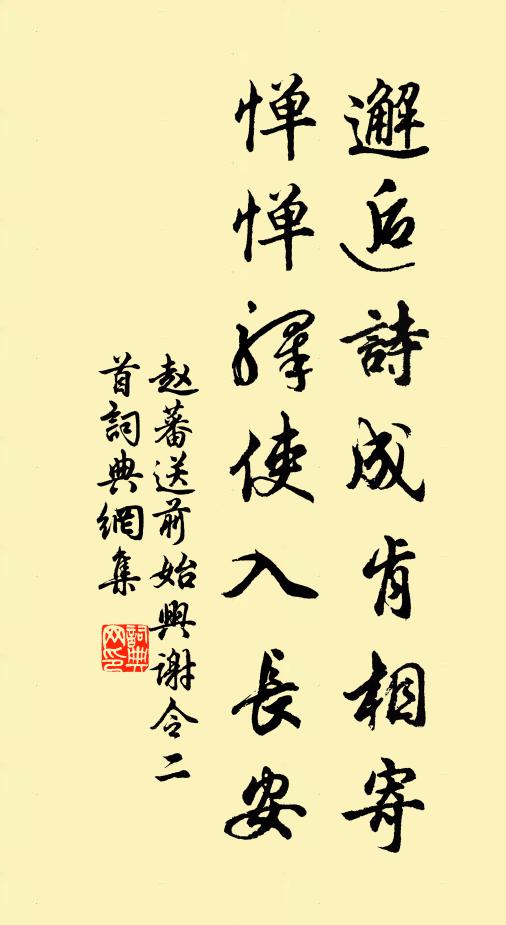 邂逅詩成肯相寄
惮惮驛使入長安
赵蕃送前始興谢令二
首詞典網集
詞典網印